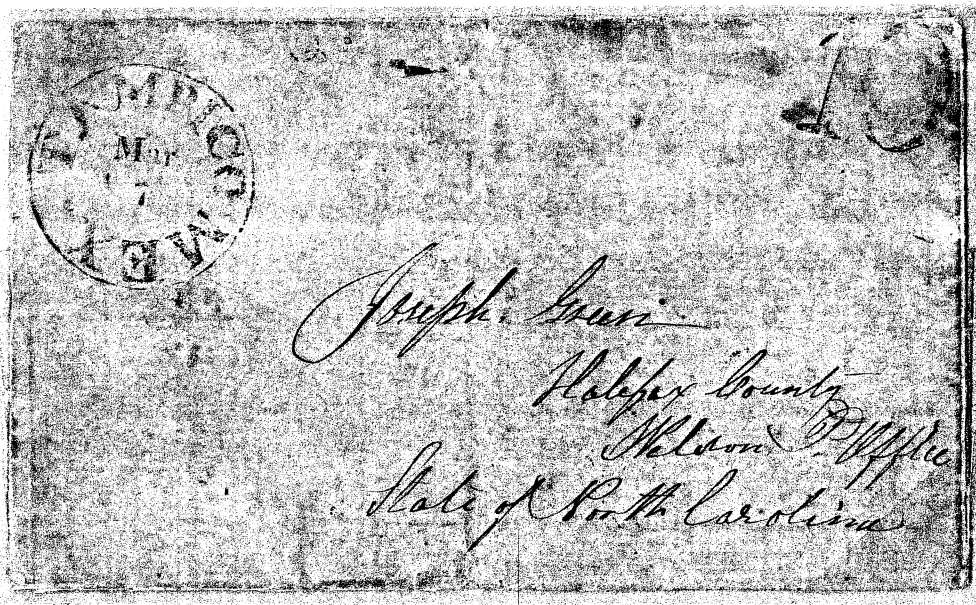 TAMPICO MEX
Mar
7
Joseph. Green
Halifax County
Weldon P. Office
State of North Carolina